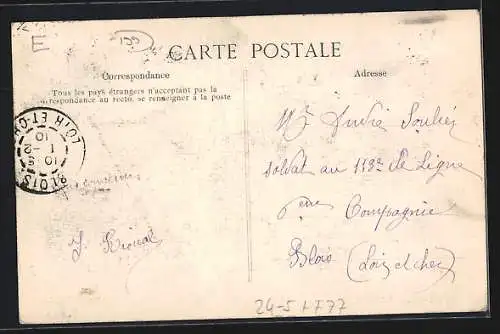 E
133
CARTE POSTALE
Correspondance
Tous les pays étrangers n'acceptant pas la
correspondance au recto, se renseigner à la poste
Adresse
BLOIS LOIR-ET-CH
10 5
1 - 2
10
Mr André
soldat au 113e de Ligne
Compagnie
Blois (Loir et cher)
24-5